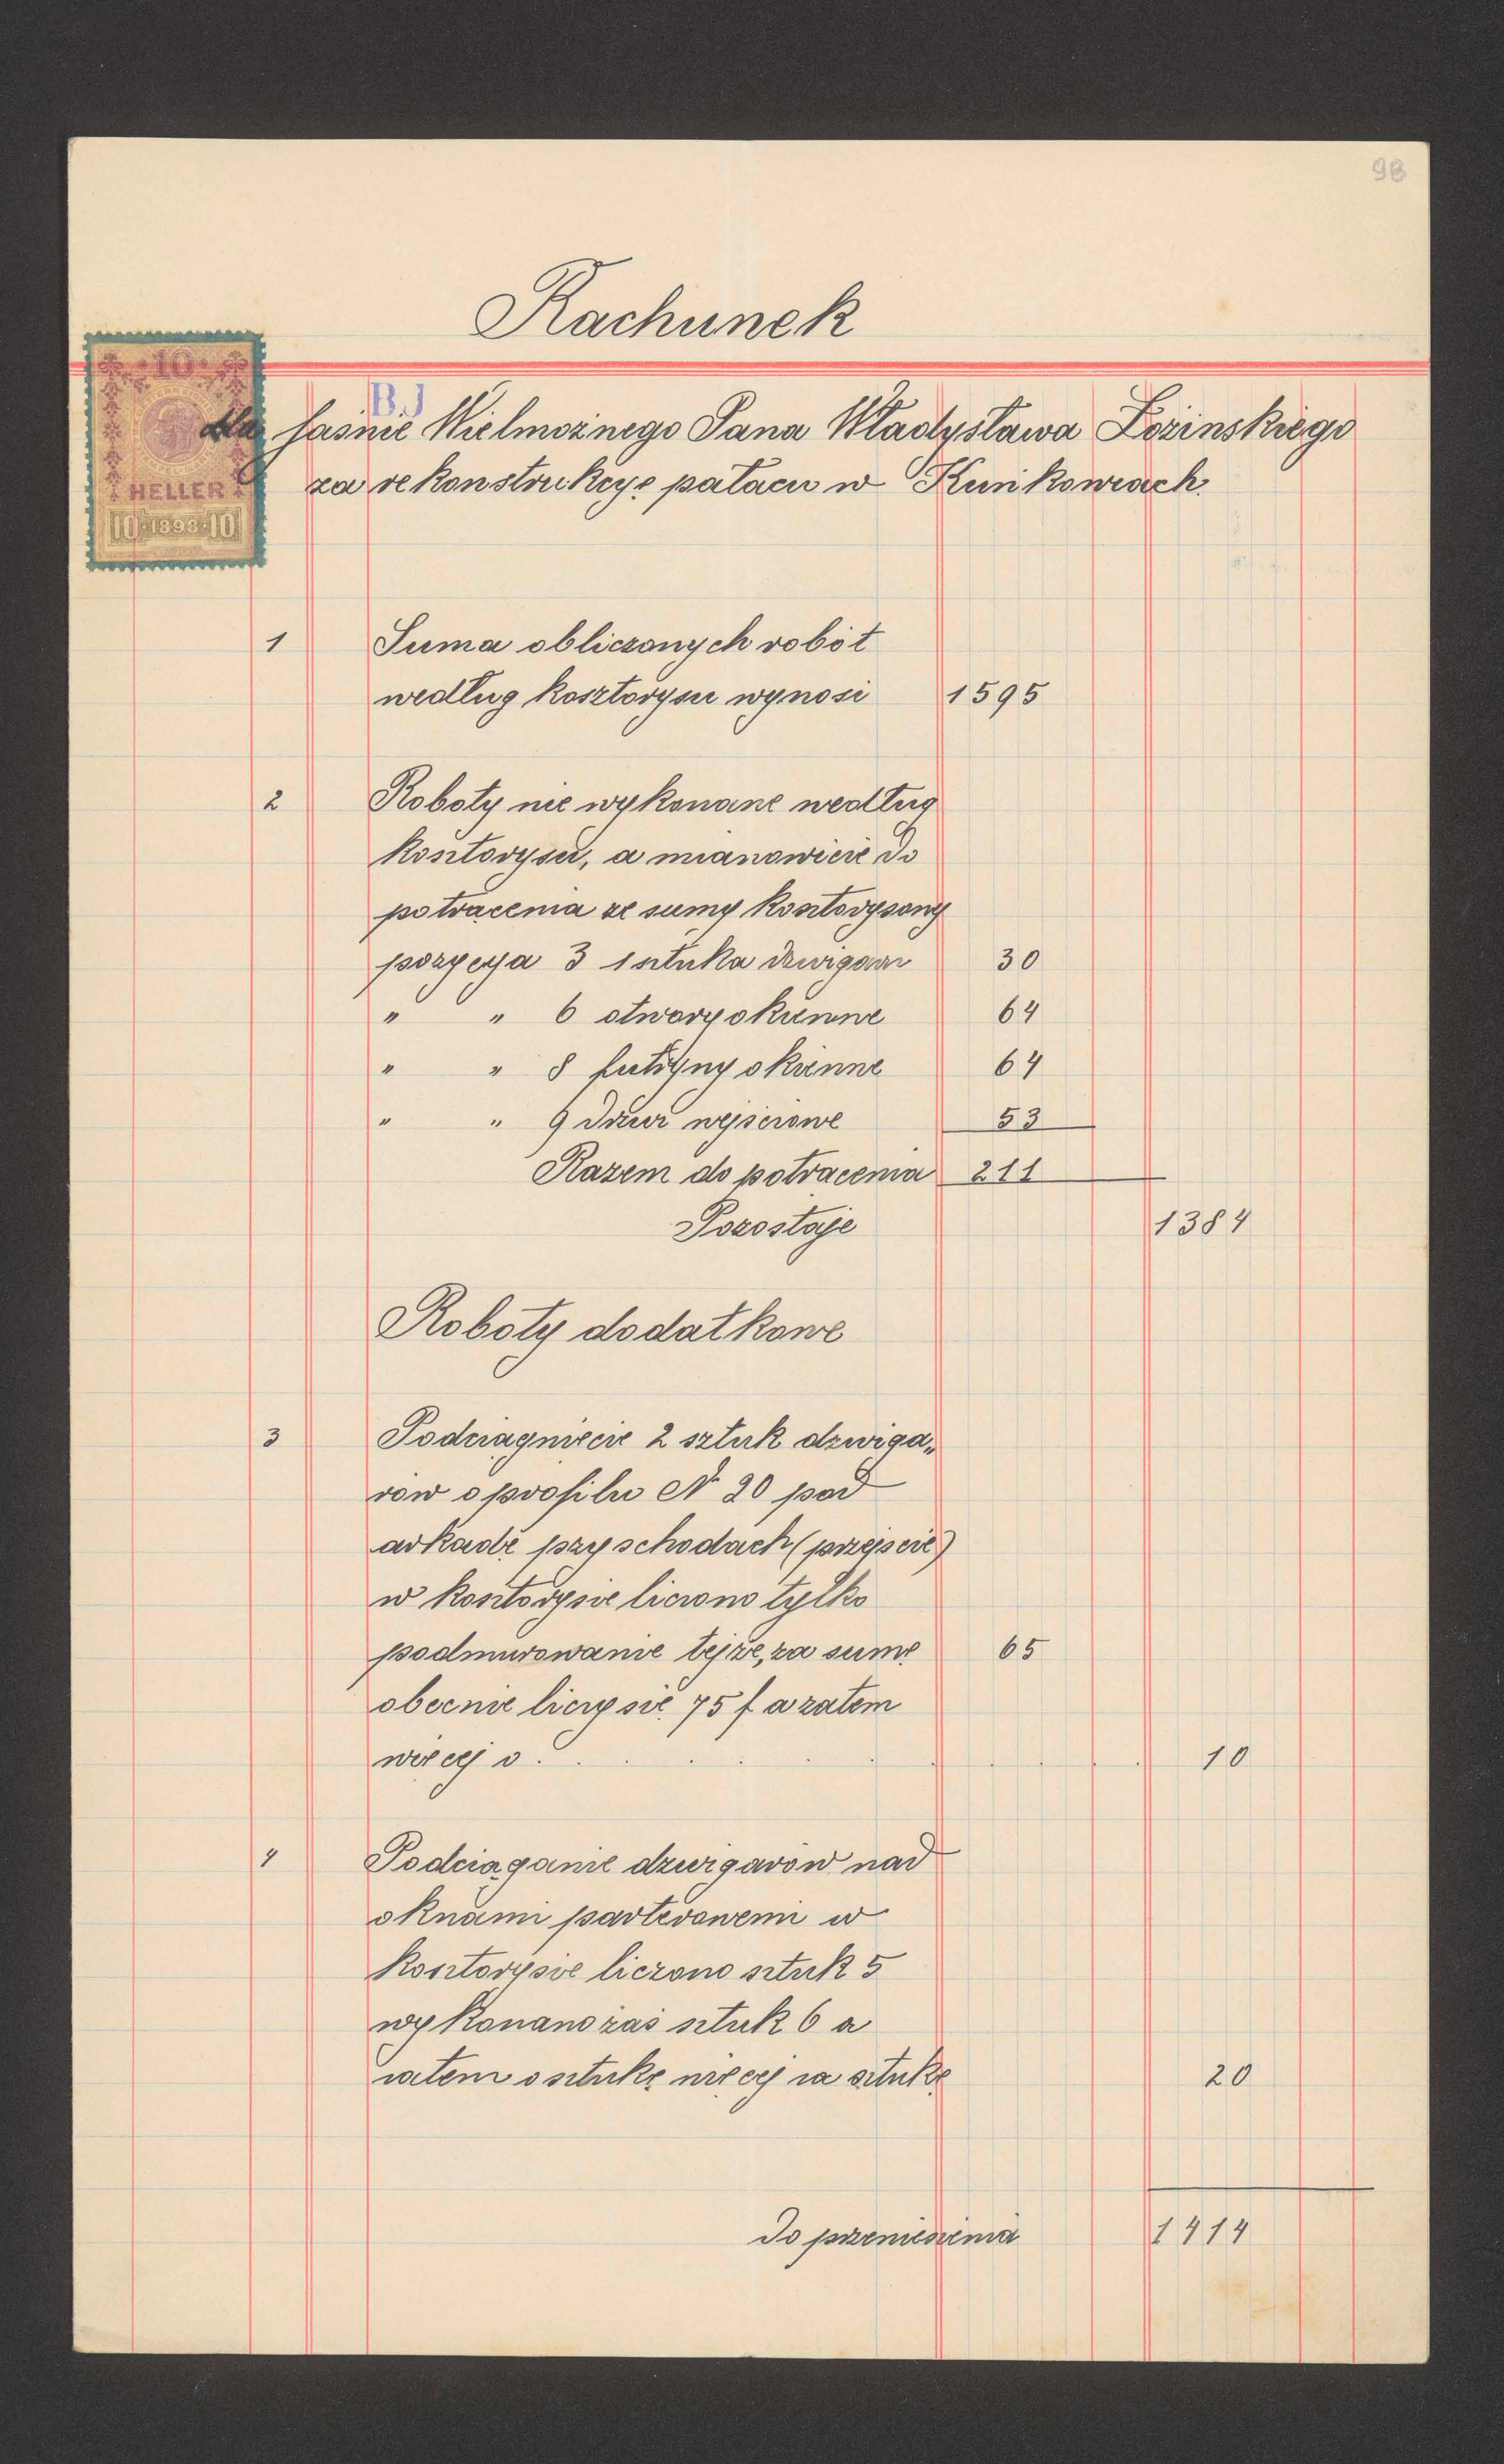 98
Rachunek
10
B.)
dla Jaśnie Wielmożnego Pana Władysława Łozinskiego
HELLER
za rekonstrukcyę pałacu w Kunkowcach.
10 1898 10
1 Suma obliczonych robót
według kosztorysu wynosi 1595
2 Roboty nie wykonane według
kosztorysu, a mianowicie do
potrącenia ze sumy kosztorysowy
pozycya 3 1 sztuka dzwigara 30
" " 6 otwory okienne 64
" " 8 futryny okienne 64
" " 9 Drzwi wejsciowe 53
Razem do potrącenia 211
Pozostaje 1384
Roboty dodatkowe
3 Podciągniecie 2 sztuk dzwiga„
rów o profilu № 20 pod
arkadę przy schodach (przejscie)
w kosztorysie liczono tylko
podmurowanie tejże, za sumę 65
obecnie liczy się 75 f a zatem
więcej o . . . . . . 10
4 Podciąganie dzwigarów nad
oknami parterowemi w
kosztorysie liczono sztuk 5
wykonano zaś sztuk 6 a
zatem o sztukę więcej za sztukę 20
Do przeniesienia 1414